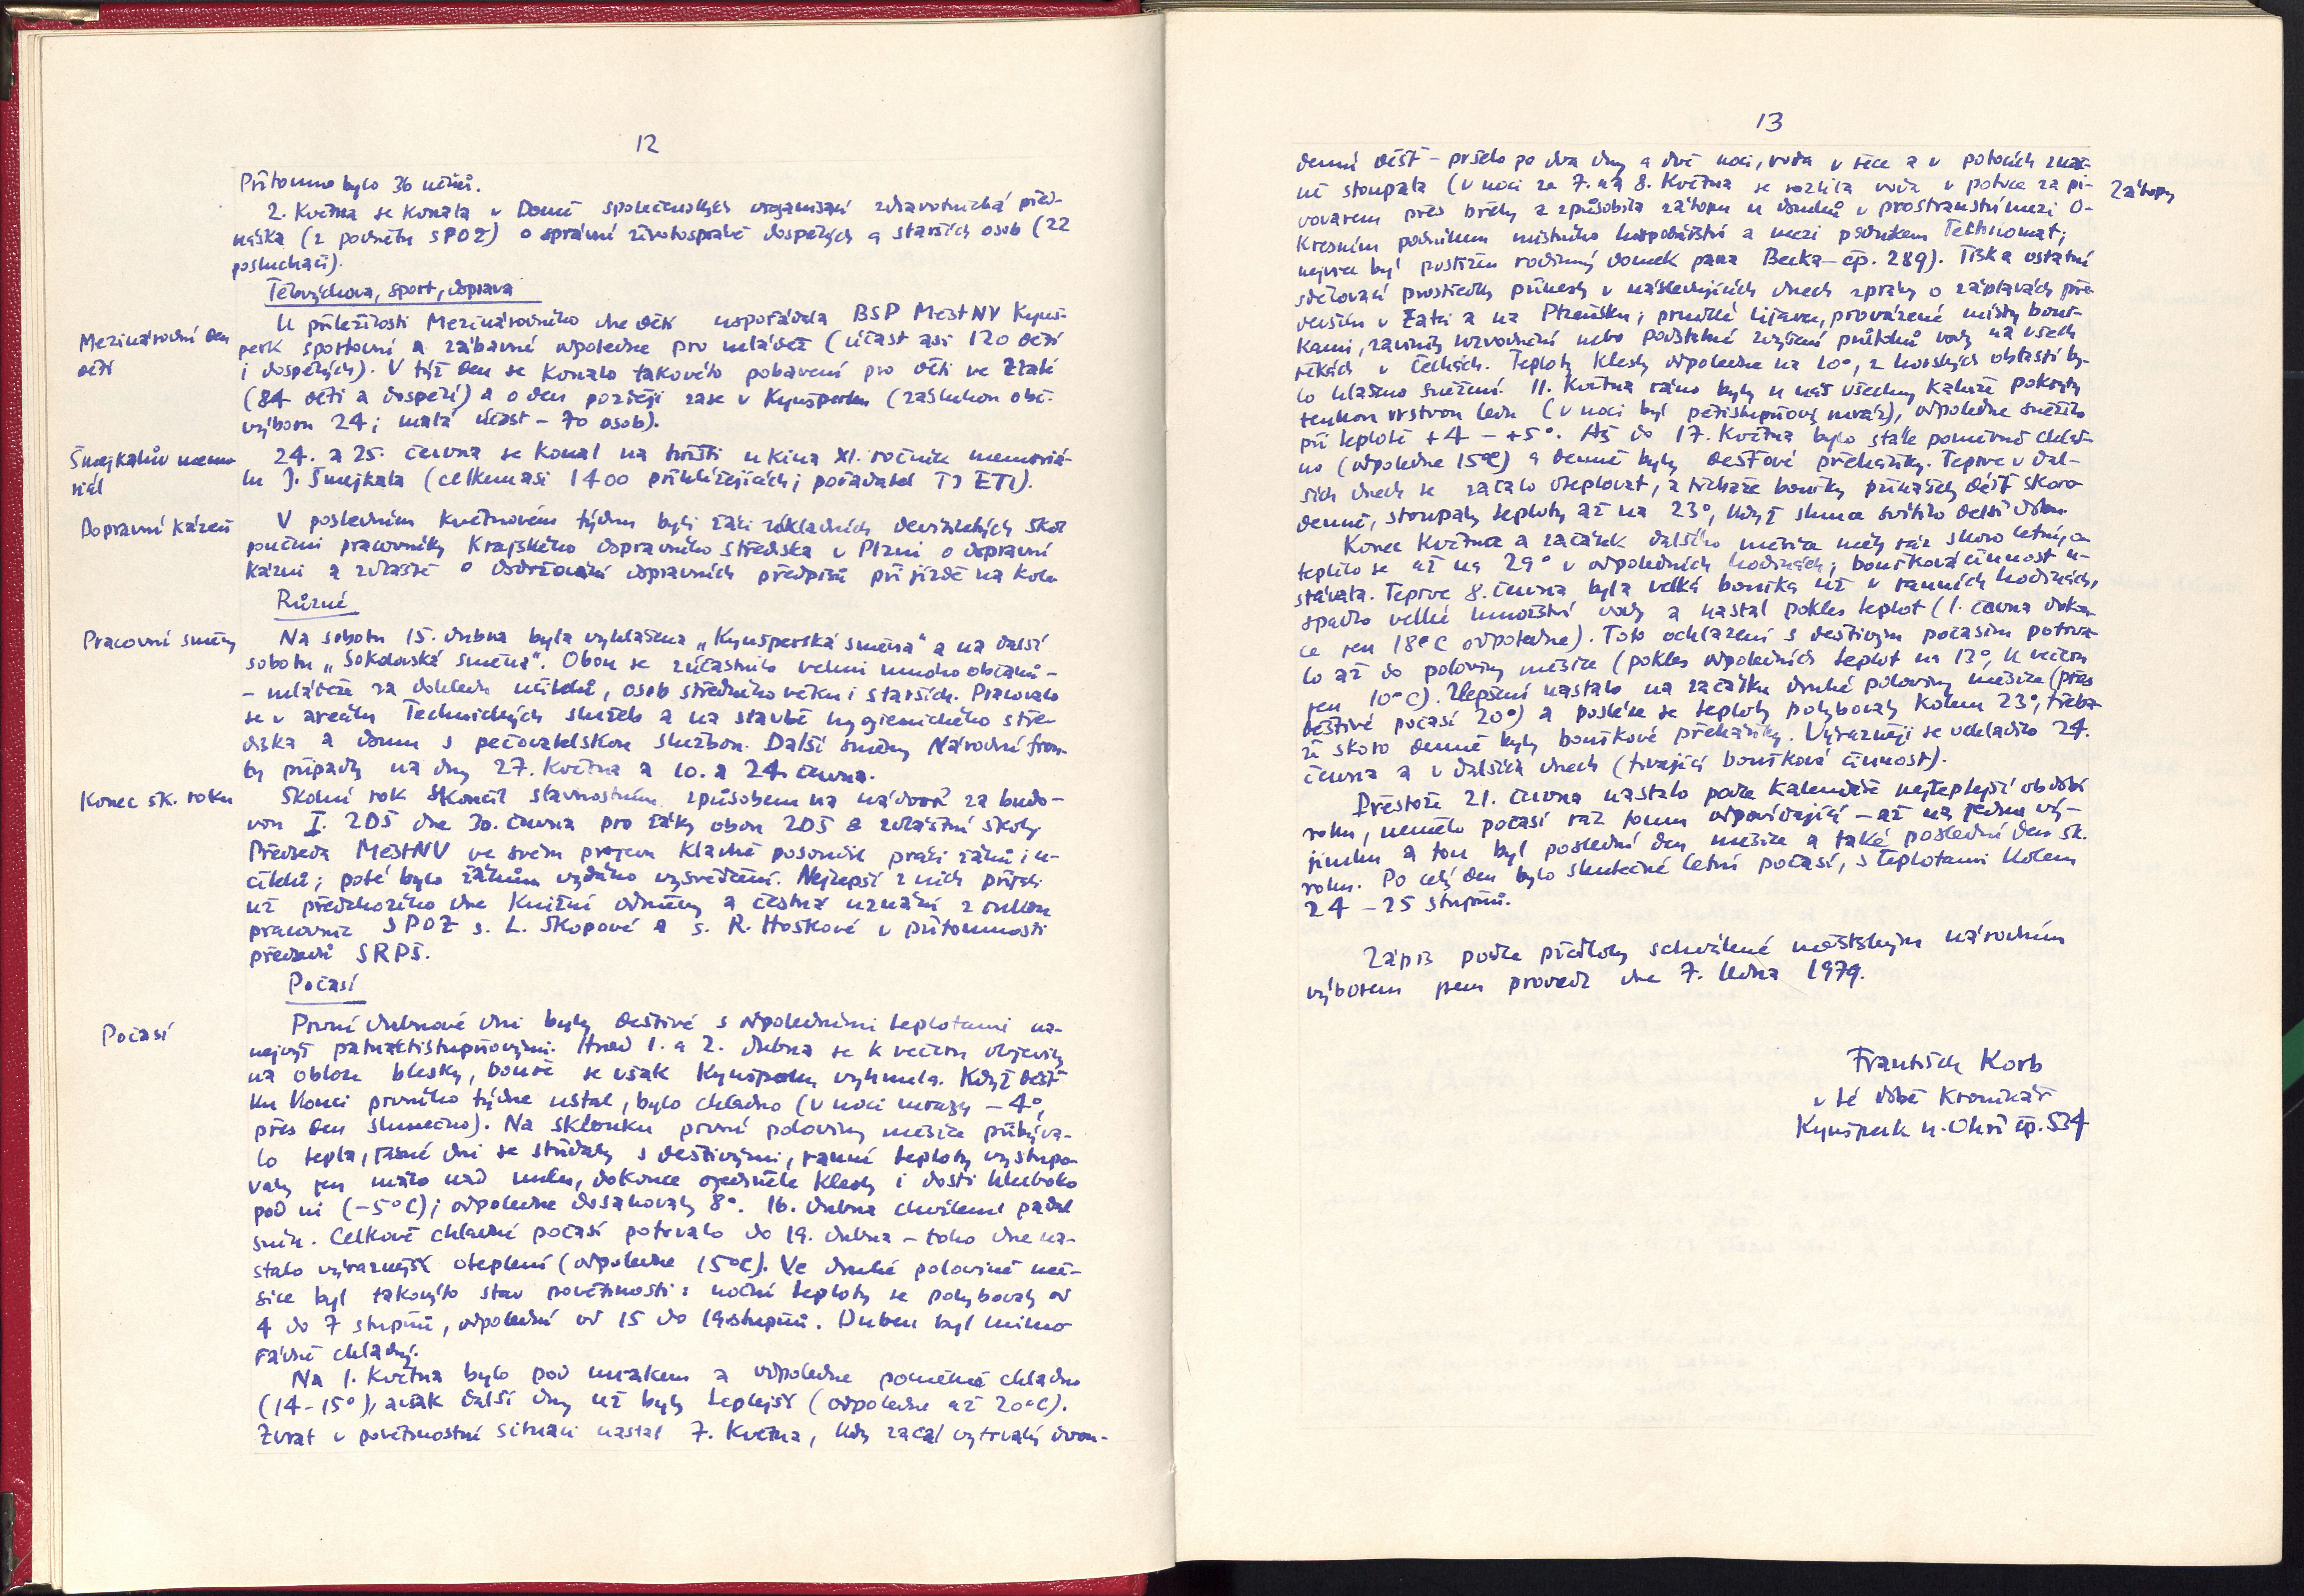 12
Přítomno bylo 36 učňů.
2. května se konala v Domě společenských organisací zdravotnická před-
náška (z podnětu SPOZ) o správné životosprávě dospělých a starších osob (22
posluchači).
Tělovýchova, sport, doprava
Mezinárodní den
dětí
U příležitosti Mezinárodního dne dětí uspořádala BSP MěstNV Kynš-
perk sportovní a zábavné odpoledne pro mládež (účast asi 120 dětí
i dospělých). V týž den se konalo takovéto pobavení pro děti ve Zlaté
(84 dětí a dospělí) a o den později zase v Kynšperku (zásluhou obč.
výboru 24; malá účast - 70 osob).
Šmejkalův memo
riál
24. a 25. června se konal na hřišti u kina XI. ročník memoriá-
lu J. Šmejkala (celkem asi 1400 přihlížejících; pořadatel TJ ETI).
Dopravní kázeň
V posledním květnovém týdnu byli žáci základních devítiletých škol
poučeni pracovníky Krajského dopravního střediska v Plzni o dopravní
kázni a zvláště o dodržování dopravních předpisů při jízdě na kole
Různé
Pracovní směny
Na sobotu 15. dubna byla vyhlášena „Kynšperská směna" a na další
sobotu „Sokolovská směna". Obou se zúčastnilo velmi mnoho občanů -
- mládeže za dohledu učitelů, osob středního věku i starších. Pracovalo
se v areálu Technických služeb a na stavbě hygienického stře-
diska a domu s pečovatelskou službou. Další směny Národní fron-
ty připadly na dny 27. května a 10. a 24. června.
Konec šk. roku
Školní rok skončil slavnostním způsobem na nádvoří za budo-
vou I. ZDŠ dne 30. června pro žáky obou ZDŠ a zvláštní školy
Předseda MěstNV ve svém projevu kladně posoudil práci žáků i u-
čitelů; poté bylo žákům vydáno vysvědčení. Nejlepší z nich přijali
už předchozího dne knižní odměny a čestná uznání z rukou
pracovnic SPOZ s. L. Škopové a s. R. Hoškové v přítomnosti
předsedů SRPŠ.
Počasí
Počasí
První dubnové dni byly deštivé s odpoledními teplotami na-
nejvýš patnáctistupňovými. Hned 1. a 2. dubna se k večeru objevily
na obloze blesky, bouře se však Kynšperku vyhnula. Když déšť
ku konci prvního týdne ustal, bylo chladno (v noci mrazy - 4°,
přes den slunečno). Na sklonku první poloviny měsíce přibýva-
lo tepla, jasné dni se střídaly s deštivými, ranní teploty vystupo-
valy jen málo nad nulu, dokonce ojediněle klesly i dosti hluboko
pod ni (-5°C); odpoledne dosahovaly 8°. 16. dubna chvílemi padal
sníh. Celkově chladné počasí potrvalo do 19. dubna - toho dne na-
stalo výraznější oteplení (odpoledne 15°C). Ve druhé polovině mě-
síce byl takovýto stav povětrnosti: noční teploty se pohybovaly od
4 do 7 stupňů, odpolední od 15 do 19 stupňů. Duben byl mimo
řádně chladný.
Na 1. května bylo pod mrakem a odpoledne poměrně chladno
(14-15°), avšak další dny už byly teplejší (odpoledne až 20°C).
Zvrat v povětrnostní situaci nastal 7. května, kdy začal vytrvalý dvou-
13
denní déšť - pršelo po dva dny a dvě noci, voda v řece a v potocích znač-
ně stoupala (v noci ze 7. na 8. května se rozlila voda v potoce za pi-
Zátopy
vovarem přes břehy a způsobila zátopu u domků v prostranství mezi O-
kresním podnikem místního hospodářství a mezi podnikem Technomat;
nejvíce byl postižen rodinný domek pana Becka - čp. 289). Tisk a ostatní
sdělovací prostředky přinesly v následujících dnech zprávy o záplavách pře
devším v Žatci a na Plzeňsku; prudké lijavce, provázené místy bouř-
kami, zavinily rozvodnění nebo podstatné zvýšení průtoků vody na všech
řekách v Čechách. Teploty klesly odpoledne na 10°, z horských oblastí by-
lo hlášeno sněžení. 11. května ráno byly u nás všechny kaluže pokryty
tenkou vrstvou ledu (v noci byl pětistupňový mráz), odpoledne sněžilo
při teplotě +4 - +5°. Až do 17. května bylo stále poměrně chlad-
no (odpoledne 15°C) a denně byly dešťové přeháňky. Teprve v dal-
ších dnech se začalo oteplovat, a třebaže bouřky přinášely déšť skoro
denně, stoupaly teploty až na 23°, když slunce svítilo delší dobu.
Konec května a začátek dalšího měsíce měly ráz skoro letní, o-
teplilo se až na 29° v odpoledních hodinách; bouřková činnost u-
stávala. Teprve 8. června byla velká bouřka už v ranních hodinách,
spadlo velké množství vody a nastal pokles teplot (1. června doko-
ce jen 18°C odpoledne). Toto ochlazení s deštivým počasím potrva-
lo až do poloviny měsíce (pokles odpoledních teplot na 13°, k večeru
jen 10°C). Zlepšení nastalo na začátku druhé poloviny měsíce (přes
deštivé počasí 20°) a posléze se teploty pohybovaly kolem 23°, třeba-
že skoro denně byly bouřkové přeháňky. Výrazněji se ochladilo 24.
června a v dalších dnech (trvající bouřková činnost).
Přestože 21. června nastalo podle kalendáře nejteplejší období
roku, nemělo počasí ráz tomu odpovídající - až na jednu vý-
jimku a tou byl poslední den měsíce a také poslední den šk.
roku. Po celý den bylo skutečně letní počasí, s teplotami kolem
24 - 25 stupňů.
Zápis podle předlohy schválené městským národním
výborem jsem provedl dne 7. ledna 1979.
František Korb
v té době kronikář
Kynšperk n. Ohří čp. 534